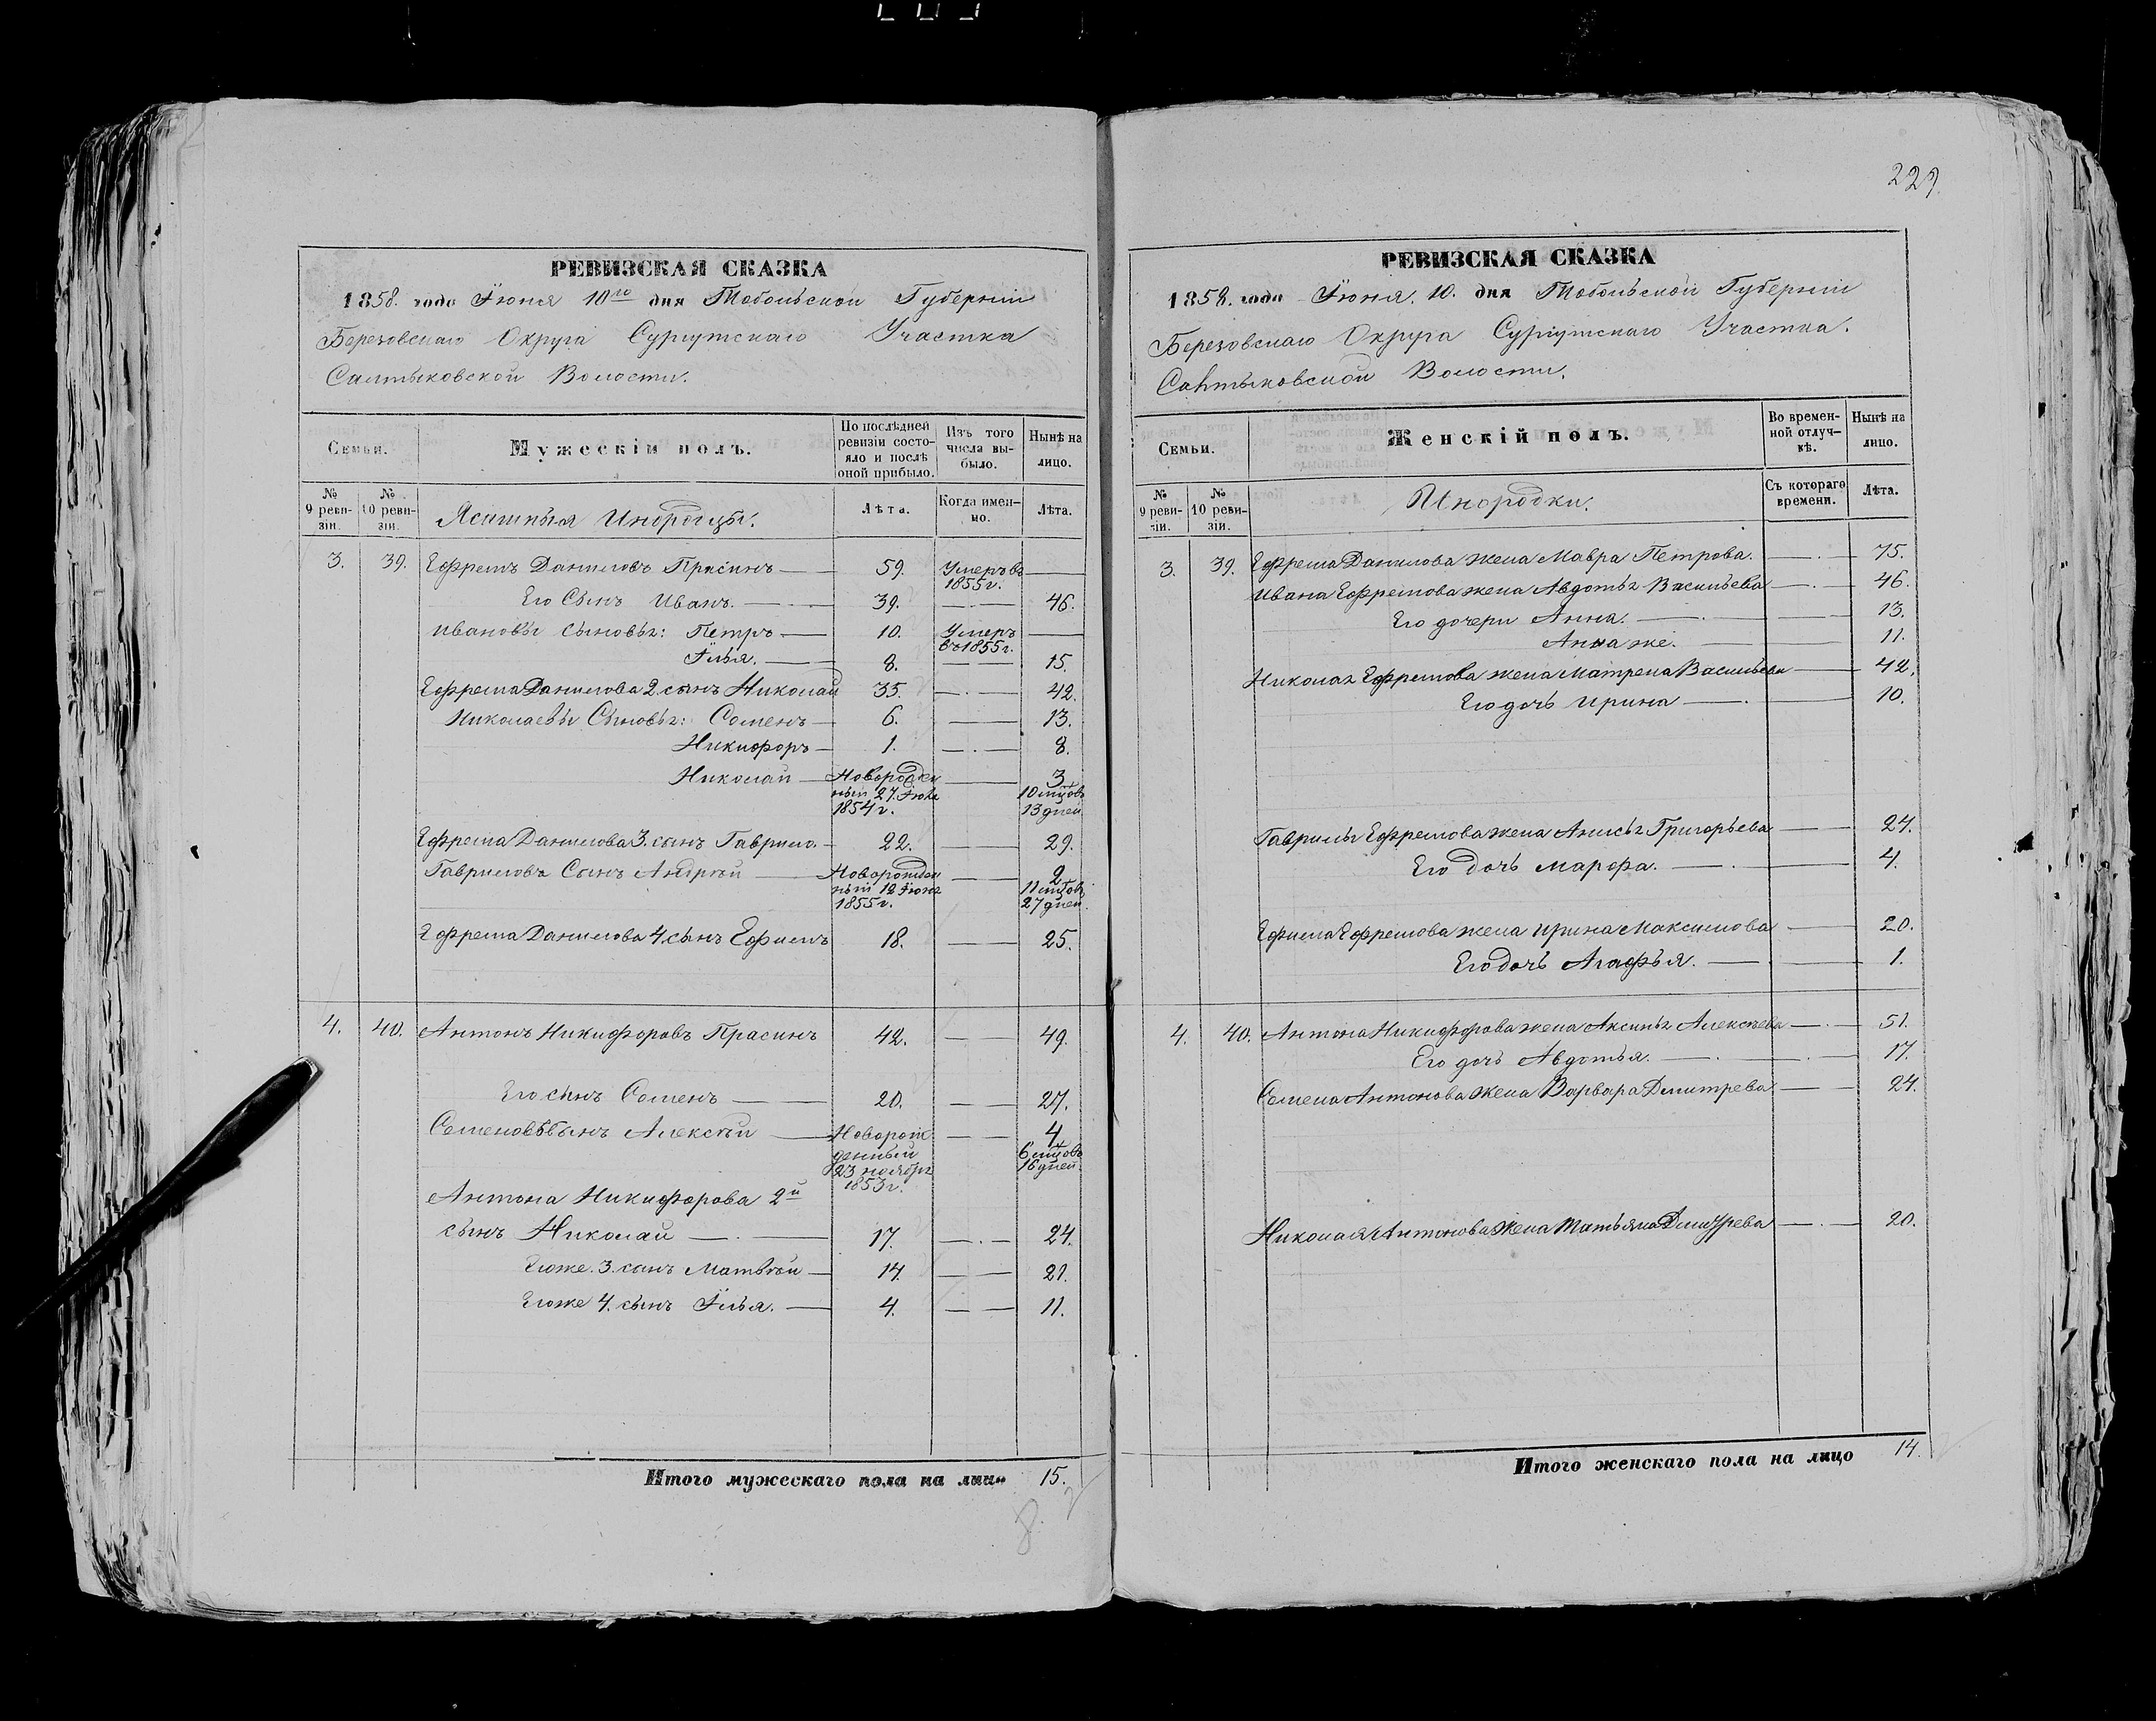 229.
РЕВИЗСКАЯ СКАЗКА
1858. года Іюня 10го дня Тобольской Губерніи
Березовскаго Округа Сургутскаго Участка
Салтыковской Волости.
Семьи.
Мужескій полъ.
По послѣдней ревизіи состояло и послѣ оной прибыло.
Изъ того числа выбыло.
Нынѣ на лицо.
№ 9 ревизіи.
№ 10 ревизіи.
Ясашныя Инородцы.
Лѣта.
Когда именно.
Лѣта.
3. 39. Ефремъ Даниловъ Прасинъ — 59. Умеръ въ 1855 г. —
Его Сынъ Иванъ. — 39. — 46.
Ивановы сыновья: Петръ — 10. Умеръ въ 1855 г. —
Илья. — 8. — 15.
Ефрема Данилова 2. сынъ Николай 35. — 42.
Николаевы Сыновья: Семенъ — 6. — 13.
Никифоръ — 1. — 8.
Николай — Новорожденный 27. Іюля 1854 г. — 3 10 мцовъ 13 дней
Ефрема Данилова 3. сынъ Гаврило. — 22. — 29.
Гавриловъ Сынъ Андрей — Новорожденный 12 Іюня 1855 г. — 2 11 мцовъ 27 дней.
Ефрема Данилова 4. сынъ Ефимъ 18. — 25.
4. 40. Антонъ Никифоровъ Прасинъ 42. — 49.
Его сынъ Семенъ — 20. — 27.
Семеновъ сынъ Алексѣй — Новорожденный 23 ноября 1853 г. — 4 6 мцовъ 16 дней.
Антона Никифорова 2й
сынъ Николай — 17. — 24.
Егоже. 3. сынъ Матвѣй — 14. — 21.
Егоже 4. сынъ Илья. — 4. — 11.
Итого мужескаго пола на лицо 15.
РЕВИЗСКАЯ СКАЗКА
1858. года Іюня. 10. дня Тобольской Губерніи
Березовскаго Округа Сургутскаго Участка.
Салтыковской Волости.
Семьи.
Женскій полъ.
Во временной отлучкѣ.
Нынѣ на лицо.
№ 9 ревизіи.
№ 10 ревизіи.
Инородки.
Съ котораго времени.
Лѣта.
3. 39. Ефрема Данилова жена Мавра Петрова. — 75.
Ивана Ефремова жена Авдотья Васильева — 46.
Его дочери Анна. — 13.
Анна же. — 11.
Николая Ефремова жена Матрена Васильева — 42.
Его дочь Ирина — 10.
Гаврилы Ефремова жена Анисья Григорьева — 24.
Его дочь Марфа. — 4.
Ефима Ефремова жена Ирина Максимова — 20.
Его дочь Агафья. — 1.
4. 40. Антона Никифорова жена Аксинья Алексѣева — 51.
Его дочь Авдотья. — 17.
Семена Антонова жена Варвара Дмитрева — 24.
Николая Антонова жена Татьяна Дмитрева — 20.
Итого женскаго пола на лицо 14.